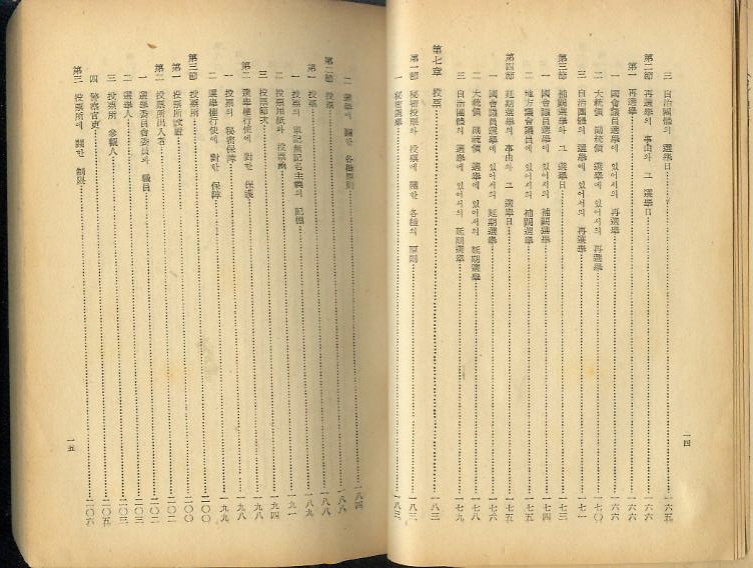 三 自治團體의 選擧日 一六五
第二節 再選擧의 事由와 그 選擧日 一六六
第一 再選擧 一六六
一 國會議員選擧에 있어서의 再選擧 一六六
二 大統領 副統領 選擧에 있어서의 再選擧 一七〇
三 自治團體의 選擧에 있어서의 再選擧 一七一
第三節 補闕選擧와 그 選擧日 一七三
一 國會議員選擧에 있어서의 補闕選擧 一七四
二 地方議會議員에 있어서의 補闕選擧
第四節 延期選擧의 事由와 그 選擧日 一七五
一 國會議員選擧에 있어서의 延期選擧 一七六
二 大統領 副統領 選擧에 있어서의 延期選擧 一七八
三 自治團體의 選擧에 있어서의 延期選擧 一七九
第七章 投票 一八三
第一節 秘密投票와 投票에 關한 各種의 原則 一八三
一 秘密選擧 一八三
一四
二 選擧에 關한 各種原則 一八四
第二節 投票 一八八
第一 投票 一八八
一 投票의 單記無記名主義의 記標 一九一
二 投票用紙와 投票函 一九四
三 投票節次 一九八
第二 選擧權行使에 對한 保護 一九八
一 投票의 秘密保障 一九九
二 選擧權行使에 對한 保障 二〇〇
第三節 投票所 二〇〇
第一 投票所設置 二〇二
第二 投票所出入者 二〇二
一 選擧委員會委員과 職員 二〇三
二 選擧人 二〇三
三 投票所 參觀人 二〇五
四 警察官吏 二〇六
第三 投票所에 關한 制限 二〇六
一五